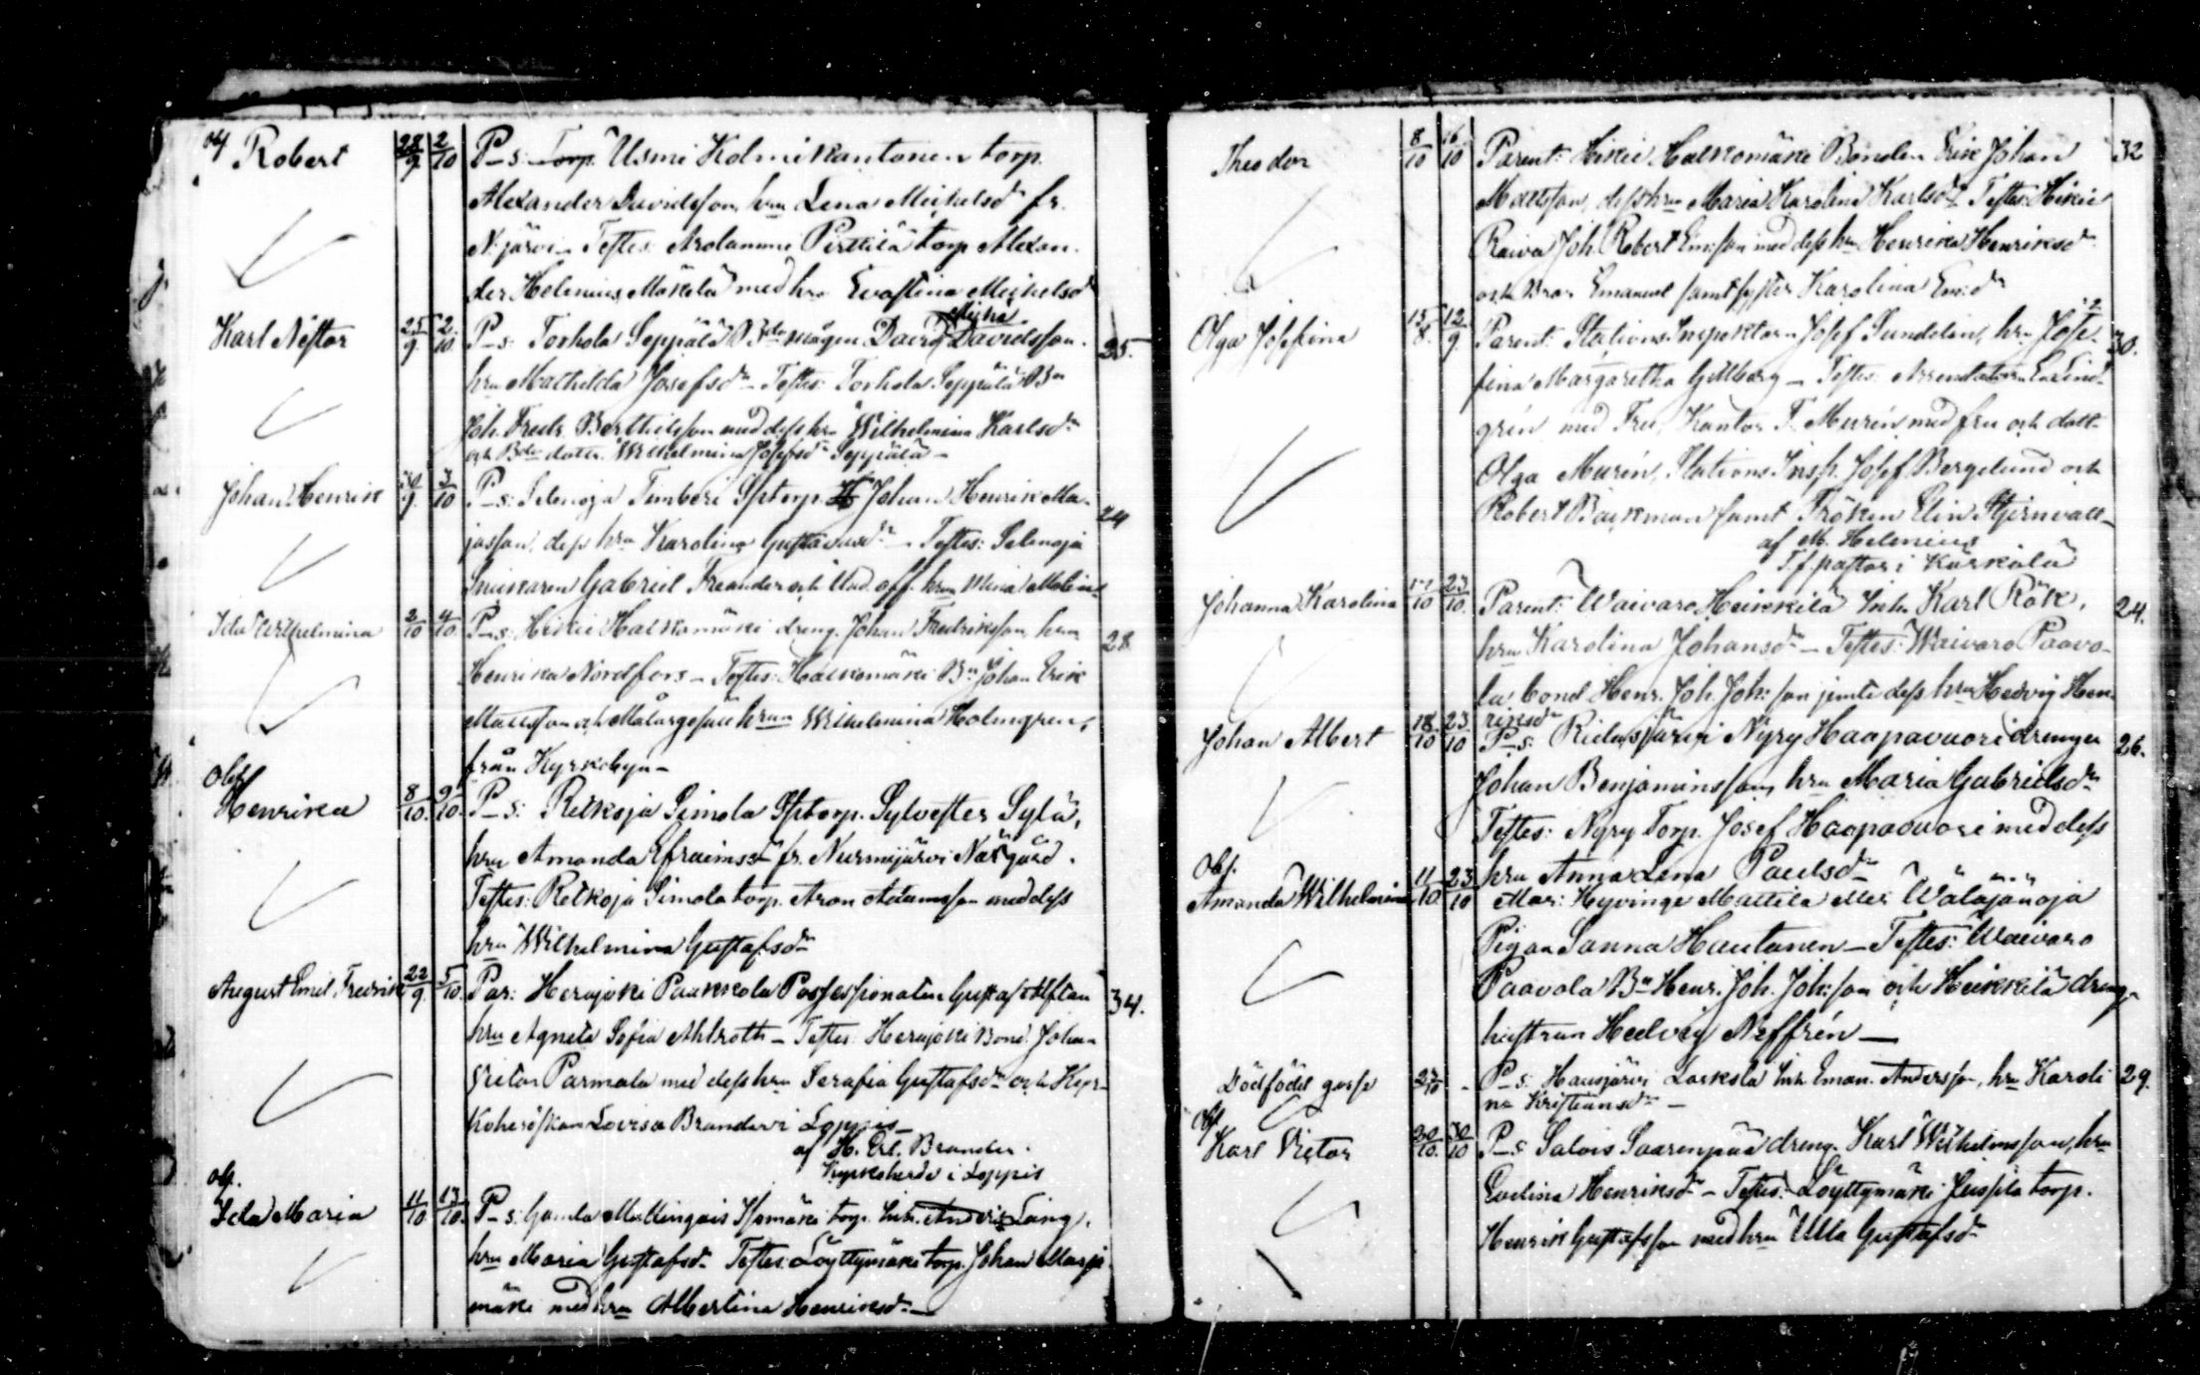 obf Robert 28/9 2/10 P–s: Torp. Usmi Kolmikantonen torp.
Alexander Davidsson, hru Lena Michelsdr fr.
N.järvi – Testes: Arolammi Perttilä torp Alexan-
der Helenius, Mäkelä med hru Evastina Michelsdr
Karl Nestor 25/9 2/10 P–s: Torhola Seppälä Bde mågen David Davidsson. 25.
hru Mathilda Josefsdr – Testes: Torhola Seppälä Bn
Joh. Fredr. Berthelsson med dess hru Wilhelmina Karlsdr
och Bde dottr. Wilhelmina Josefsdr Seppälä –
Johan Henrik 30/9 3/10 P–s: Selenoja Timberi Sptorp. Johan Henrik Ma- 24
jasson, dess hru Karolina Gustavsdr – Testes: Selenoja
Snickaren Gabriel Freander och Und.off. hrun Mina Malin
Ida Wilhelmina 2/10 4/10 P–s: Hikiä Halkomäki dreng. Johan Fredriksson, hru 28
Henrika Nordfors – Testes: Halkomäki Bn Johan Erik
Mattsson och Målargesäll hrun Wilhelmina Holmgren,
från Kyrkobyn –
Obf.
Henrika 8/10. 9/10. P–s: Retkoja Simola Sptorp. Sylvester Sylä,
hru Amanda Efraimsdr fr. Nurmijärvi Närgård.
Testes: Retkoja Simola torp. Aron Adamsson med dess
hru Wilhelmina Gustafsdr
August Emil Fredrik 22/9. 5/10. Par: Herajoki Paakkola Possessionaten Gustaf Alftan 34.
hru Agneta Sofia Ahlroth – Testes: Herajoki Bond. Johan
Victor Parmala med dess hru Serafia Gustafsdr och Kyr-
koherdskan Lovisa Brander i Loppis –
af H. Erl. Brander.
Kyrkoherde i Loppis
obf.
Ida Maria 11/10 13/10. P–s: torp. Inh. Lång.
hru Maria Gustafsdr Testes: Löyttymäki torp. Johan Marja
mäki med hru Albertina Henriksdr –
Theodor 8/10 16/10 Parent: Hikiä Halkomäki Bonden Erik Johan 32
Mattsson, dess hru Maria Karolina Karlsdr Testes: Hikiä
Raiva Joh. Robert Em:sson med dess hru Henrika Henriksdr
och Bror Emanuel samt syster Karolina Em:dr
Olga Josefina 15/8. 12/9. Parent: Stations Inspektorn Josef Sundelin, hru Jose- 30.
fina Margaretha Gyllberg – Testes: Arrendatorn Lind-
gren med Fru, Kantor F. Murén med fru och dott.
Olga Murén, Stations Insp. Josef Bergelund och
Robert Bäckman samt Fröken Elin Stjernvall –
af M. Helenius
T.f. pastor i Kärkölä
Johanna Karolina 17/10 23/10. Parent: Waivaro Heikkilä Inh. Karl Rök, 24.
hru Karolina Johansdr – Testes: Waivaro Paavo-
la bond Henr. Joh. Joh:son jemte dess hru Hedvig Hen-
riksdr
Johan Albert 18/10 23/10 P–s: Ridasjärvi Nyry Haapavuori drengen 26.
Johan Benjaminsson, hru Maria Gabrielsdr
Testes: Nyry Torp. Josef Haapavuori med dess
hru Anna Lena Paulsdr
Obf.
Amanda Wilhelmina 11/10 23/10 Mor: Hyvinge Mattila eller Wäläjänoja
Pigan Sanna Hautanen – Testes: Waivaro
Paavola Bn Henr. Joh. Joh:son och Heikkilä dreng-
hustrun Hedvig Neffrén –
Dödfödt gosse 27/10 – P–s: Hausjärvi Laeksla Inh. Eman. Andersson, hru Karoli 29.
na Kristiansdr –
Obf.
Karl Victor 20/10. 30/10 P–s Salois Saarenpää dreng. Karl Wilhelmsson, hru
Evelina Henriksdr – Testes: Löyttymäki Jussila torp.
Henrik Gustafsson med hru Ulla Gustafsdr